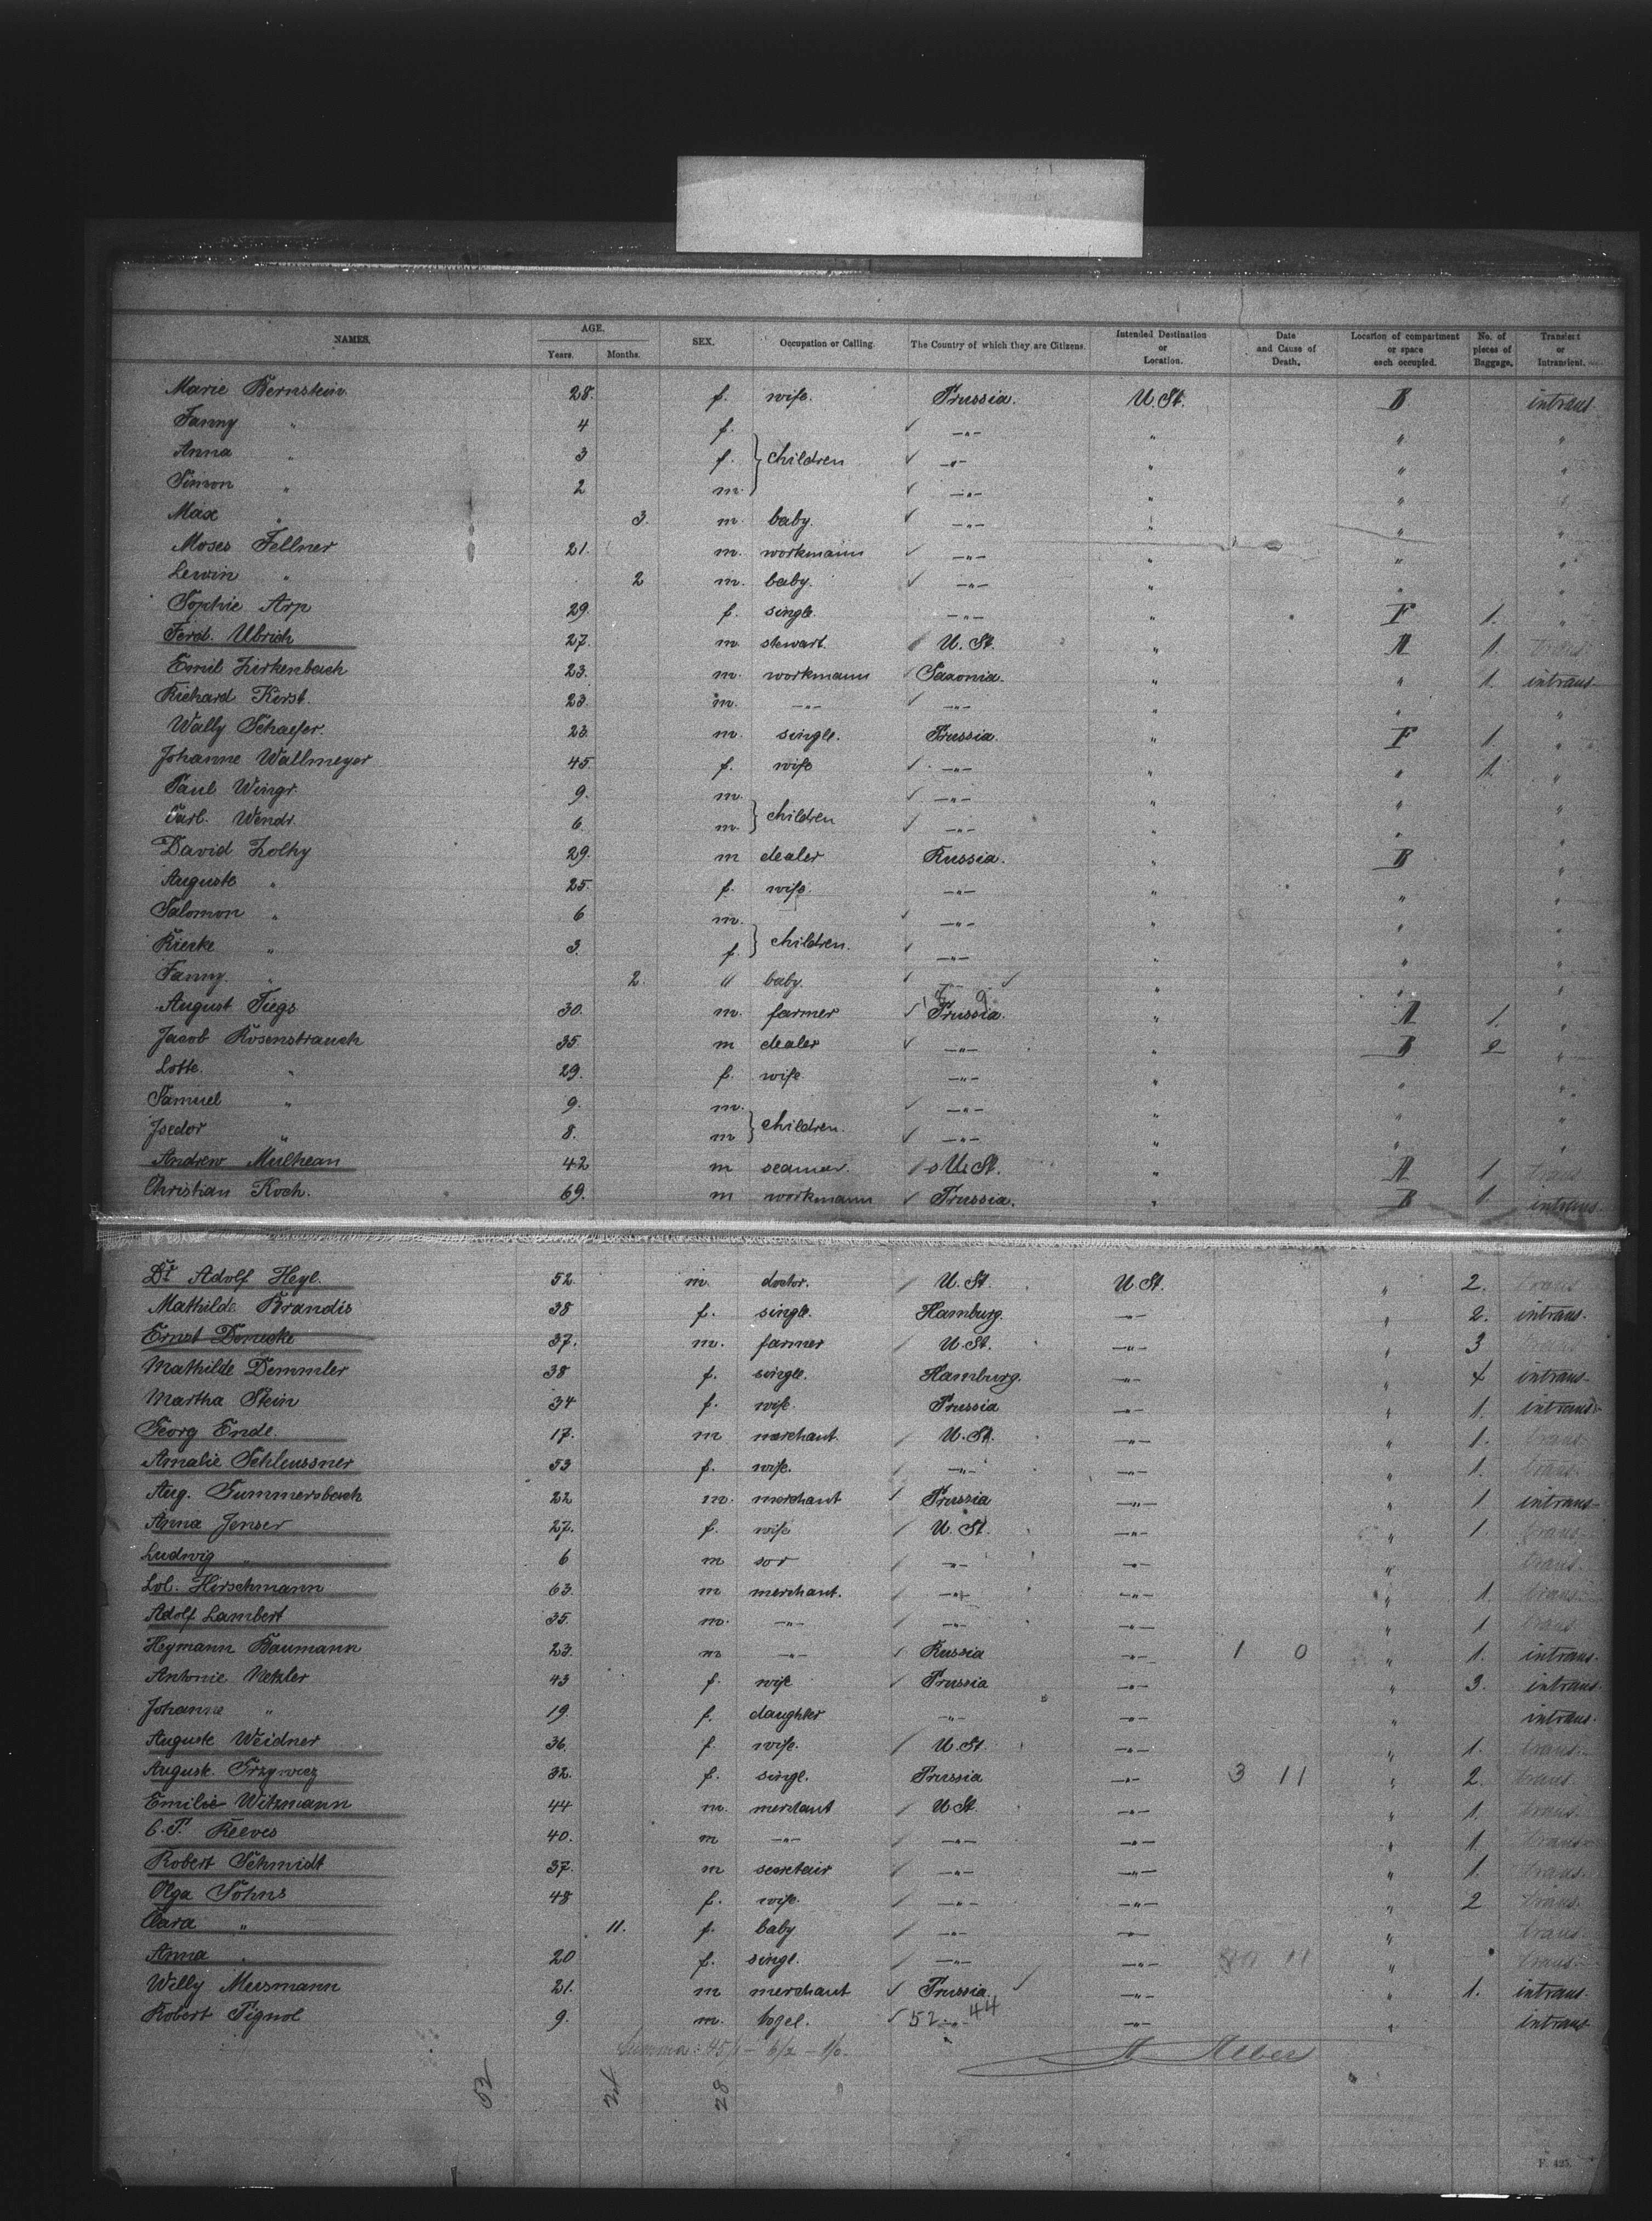 NAMES. AGE. Years. Months. SEX. Occupation or Calling. The Country of which they are Citizens. Intended Destination or Location. Date and Cause of Death. Location of compartment or space each occupied. No. of pieces of Baggage. Transient or Intransient.
Marie Bernstein 28. f. wife. Prussia. U. St. B intrans.
Fanny " 4 f. —"— " " "
Anna " 3 f. } children —"— " " "
Simon " 2 m. —"— " " "
Max " 3. m. baby. —"— " " "
Moses Fellner 21. m. workmann —"— " " "
Lewin " 2 m. baby. —"— " " "
Sophie Arp 29. f. single. —"— " F 1. "
Ferd. Ulrich 27. m. stewart. U. St. " A 1. trans.
Emil Zirkenbach 23. m. workmann Saxonia. " " 1. intrans
Richard Kerst. 23. m. —"— —"— " " "
Wally Schaefer. 23. m. single. Prussia. " F 1. "
Johanne Wallmeyer 45 f. wife —"— " " 1. "
Paul Wingr. 9. m. —"— " " "
Carl. Wendr. 6. m. } children —"— " " "
David Zolky 29. m dealer Russia. " B "
Auguste " 25. f. wife. —"— " " "
Salomon " 6 m. —"— " " "
Rieke " 3. f. } children. —"— " " "
Fanny. " 2. " baby. " " "
August Tiegs 30. m. farmer Prussia. " A 1. "
Jacob Rosenstrauch 35. m dealer —"— " B 2 "
Lotte. " 29. f. wife —"— " " "
Samuel " 9. m. —"— " " "
Isedor " 8. m } children. —"— " " "
Andrew Mulhean 42 m seaman. U. St. " A 1. trans
Christian Koch. 69. m workmann Prussia. " B 1. intrans.
Dr. Adolf Heyl. 52. m. doctor. U. St. U St. " 2. trans
Mathilde Brandis 38 f. single. Hamburg. —"— " 2. intrans.
Ernst Denecke 37. m. farmer U. St. —"— " 3 trans
Mathilde Demmler 38 f. single. Hamburg. —"— " 4 intrans
Martha Stein 34 f. wife. Prussia —"— " 1. intrans
Georg Ende. 17. m merchant. U. St. —"— " 1. trans
Amalie Schleussner 53 f. wife. —"— —"— " 1. trans.
Aug. Gummersbach 22 m. merchant Prussia —"— " 1 intrans
Anna Jenser 27. f. wife U. St. —"— " 1. trans
Ludwig " 6 m son —"— —"— " trans.
Lol. Hirschmann 63. m merchant. —"— —"— " 1 trans
Adolf Lambert 35. m. —"— —"— —"— " 1 trans
Heymann Baumann 23. m —"— Russia —"— 1 0 " 1. intrans.
Antonie Netzler 43 f. wife Prussia —"— " 3. intrans.
Johanna " 19. f. daughter —"— —"— " intrans.
Auguste Weidner 36. f. wife. U St. —"— " 1. trans.
August. Grzywicz 32. f. singl. Prussia —"— 3 11 " 2. trans.
Emilie Witzmann 44 m. merchant U St. —"— " 1. trans.
C. P. Reeves 40. m —"— —"— —"— " 1. trans
Robert Schmidt 37. m secretair —"— —"— " 1. trans.
Olga Sohns 48 f. wife. —"— —"— " 2 trans.
Clara " 11. f. baby —"— —"— " trans.
Anna " 20 f. singl. —"— —"— " trans.
Willy Meesmann 21. m merchant Prussia. —"— " 1. intrans
Robert Pignol 9. m. 52 44 —"— " intrans
Summa: 45/1 — 6/2 — 1/0.
52 24 28
F. 425.